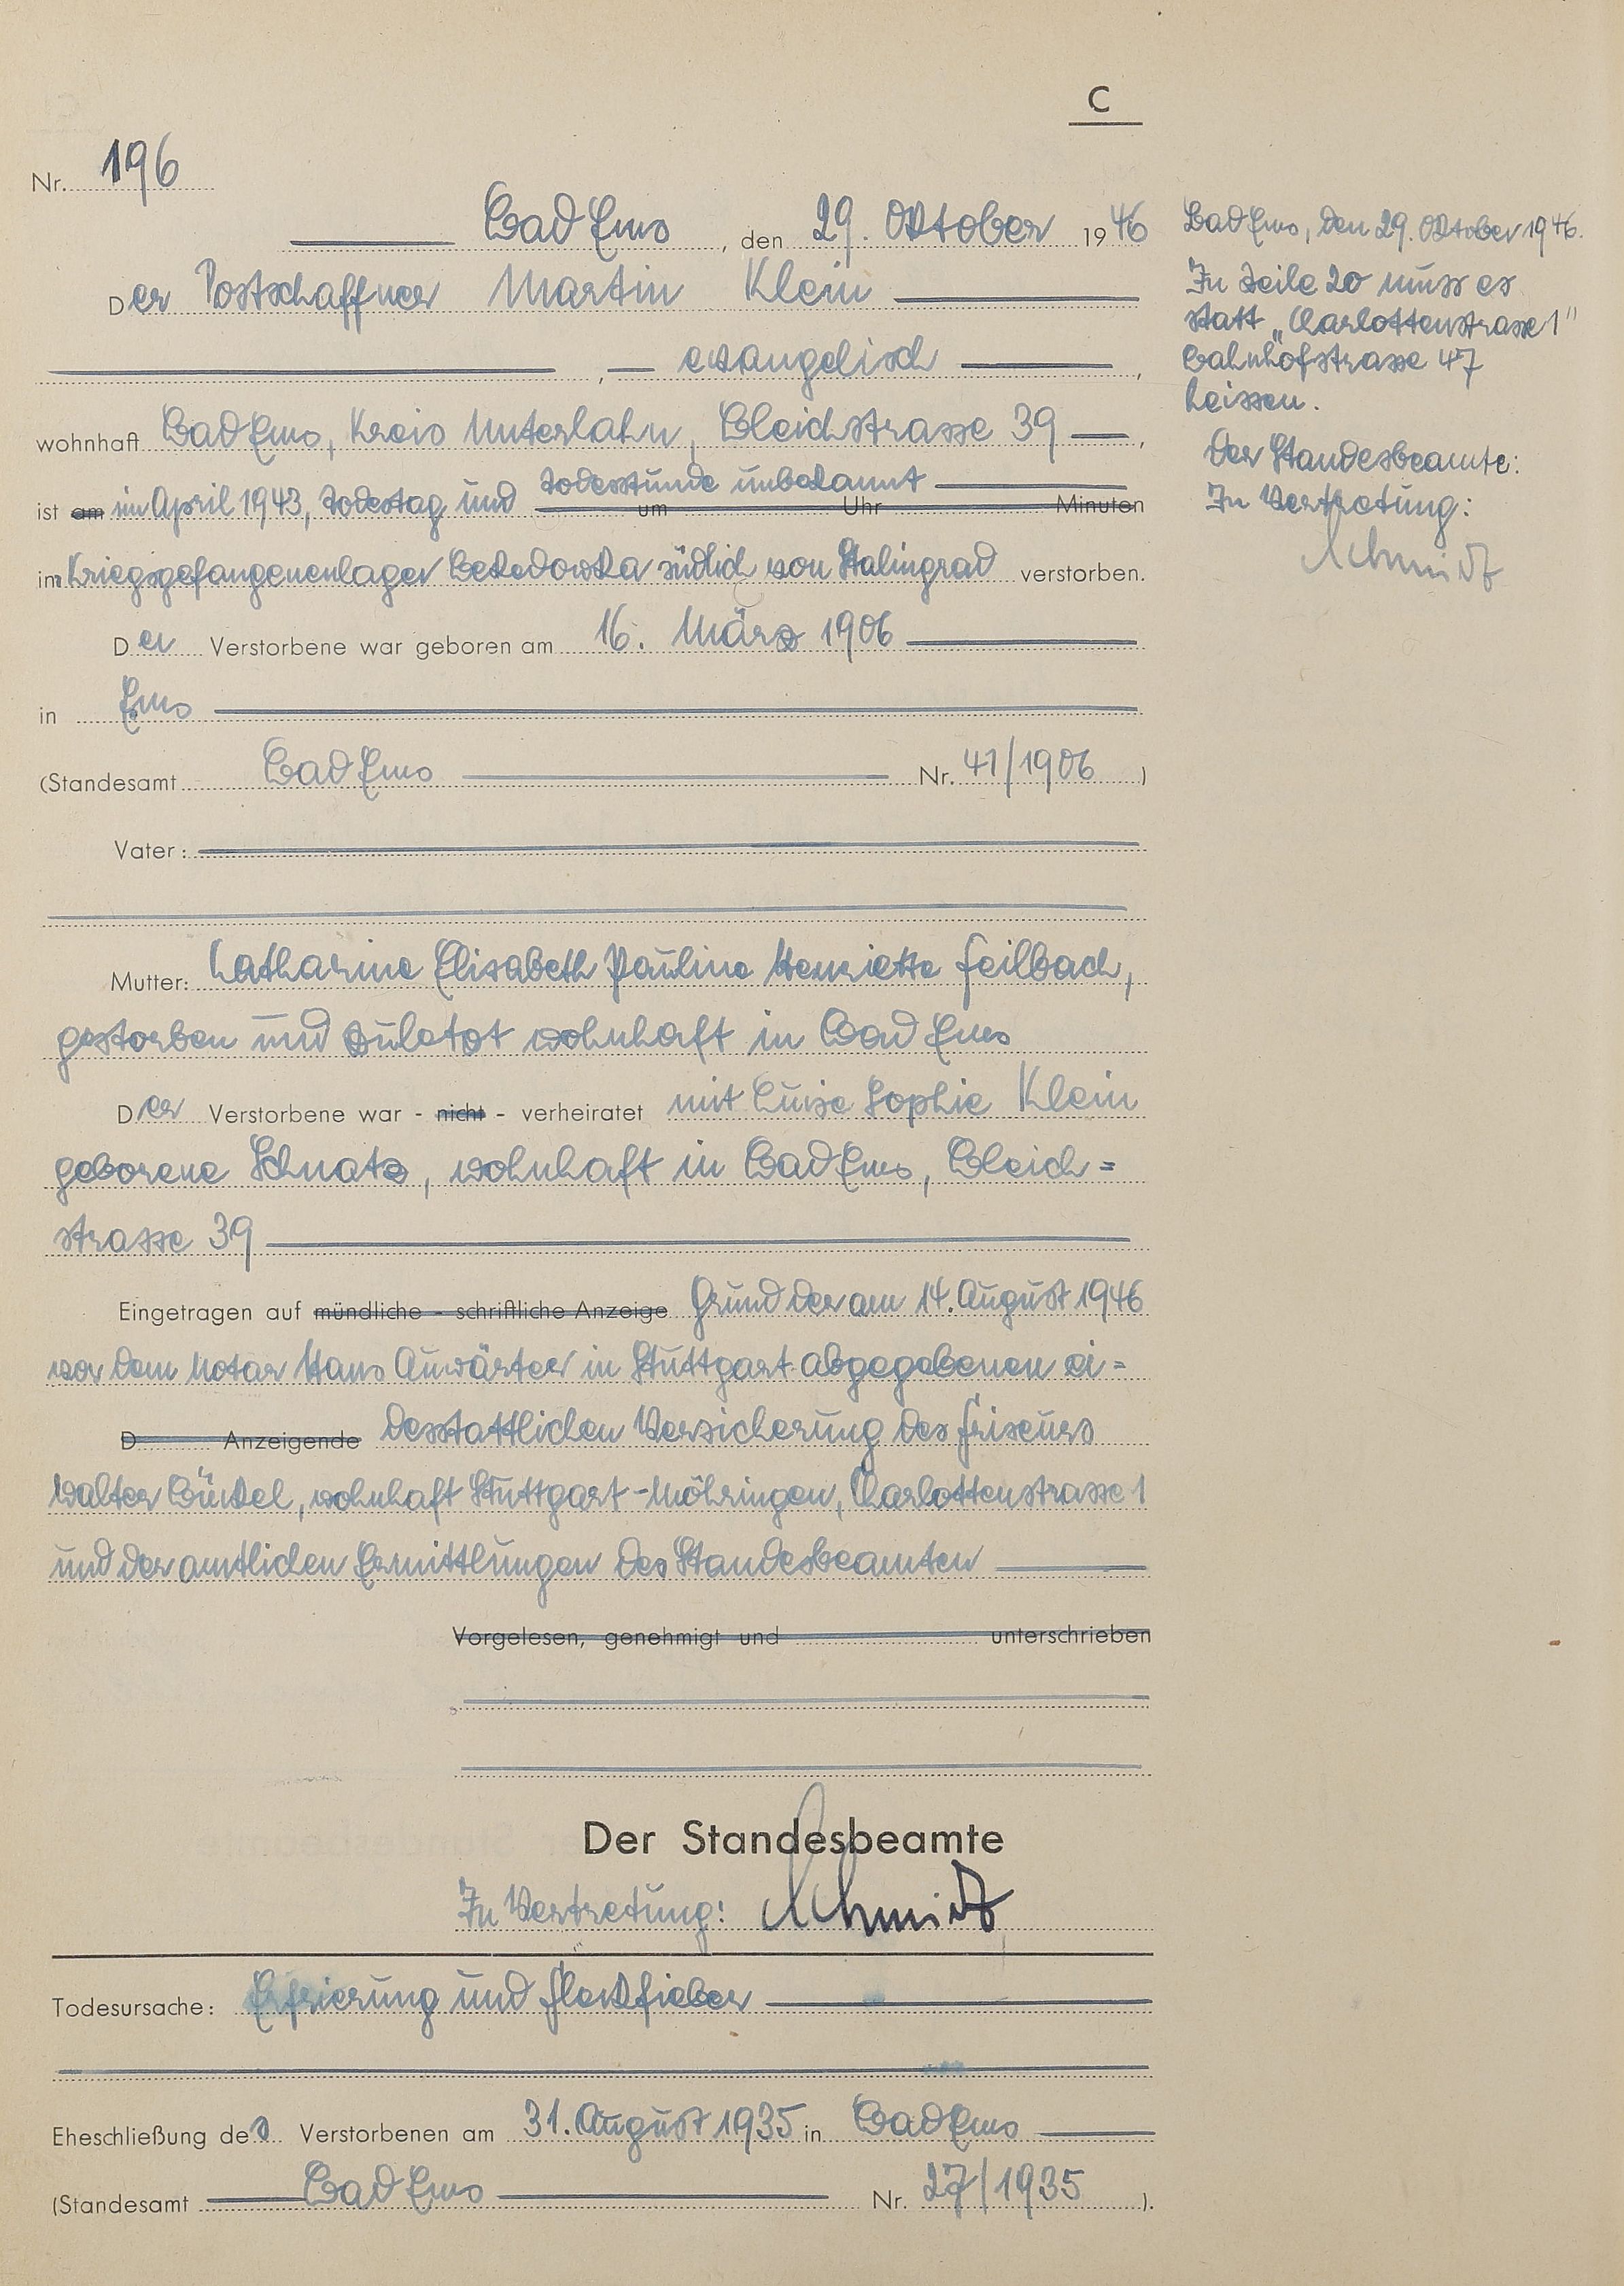 C
Nr. 196
Bad Ems, den 29. Oktober 1946
Der Postschaffner Martin Klein
, evangelisch,
wohnhaft Bad Ems, Kreis Unterlahn, Bleichstrasse 39,
ist am im April 1943, Todestag und Todesstunde unbekannt um Uhr Minuten
im Kriegsgefangenenlager Beketowka südlich von Stalingrad verstorben.
Der Verstorbene war geboren am 16. März 1906
in Ems
(Standesamt Bad Ems Nr. 41/1906)
Vater:
Mutter: Katharine Elisabeth Pauline Henriette Feilbach,
gestorben und zuletzt wohnhaft in Bad Ems
Der Verstorbene war - nicht - verheiratet mit Luise Sophie Klein
geborene Schnatz, wohnhaft in Bad Ems, Bleich=
strasse 39
Eingetragen auf mündliche - schriftliche Anzeige Grund der am 14. August 1946
vor dem Notar Hans Anwärter in Stuttgart abgegebenen ei=
D Anzeigende desstattlichen Versicherung des Friseurs
Walter Bürkel, wohnhaft Stuttgart-Möhringen, Charlottenstrasse 1
und der amtlichen Ermittlungen des Standesbeamten
Vorgelesen, genehmigt und unterschrieben
Der Standesbeamte
In Vertretung: Schmidt
Todesursache: Erfrierung und Fleckfieber
Eheschließung des Verstorbenen am 31. August 1935 in Bad Ems
(Standesamt Bad Ems Nr. 27/1935).
Bad Ems, den 29. Oktober 1946.
In Zeile 20 muss es
statt „Charlottenstrasse 1"
Bahnhofstrasse 47
heissen.
Der Standesbeamte:
In Vertretung:
Schmidt